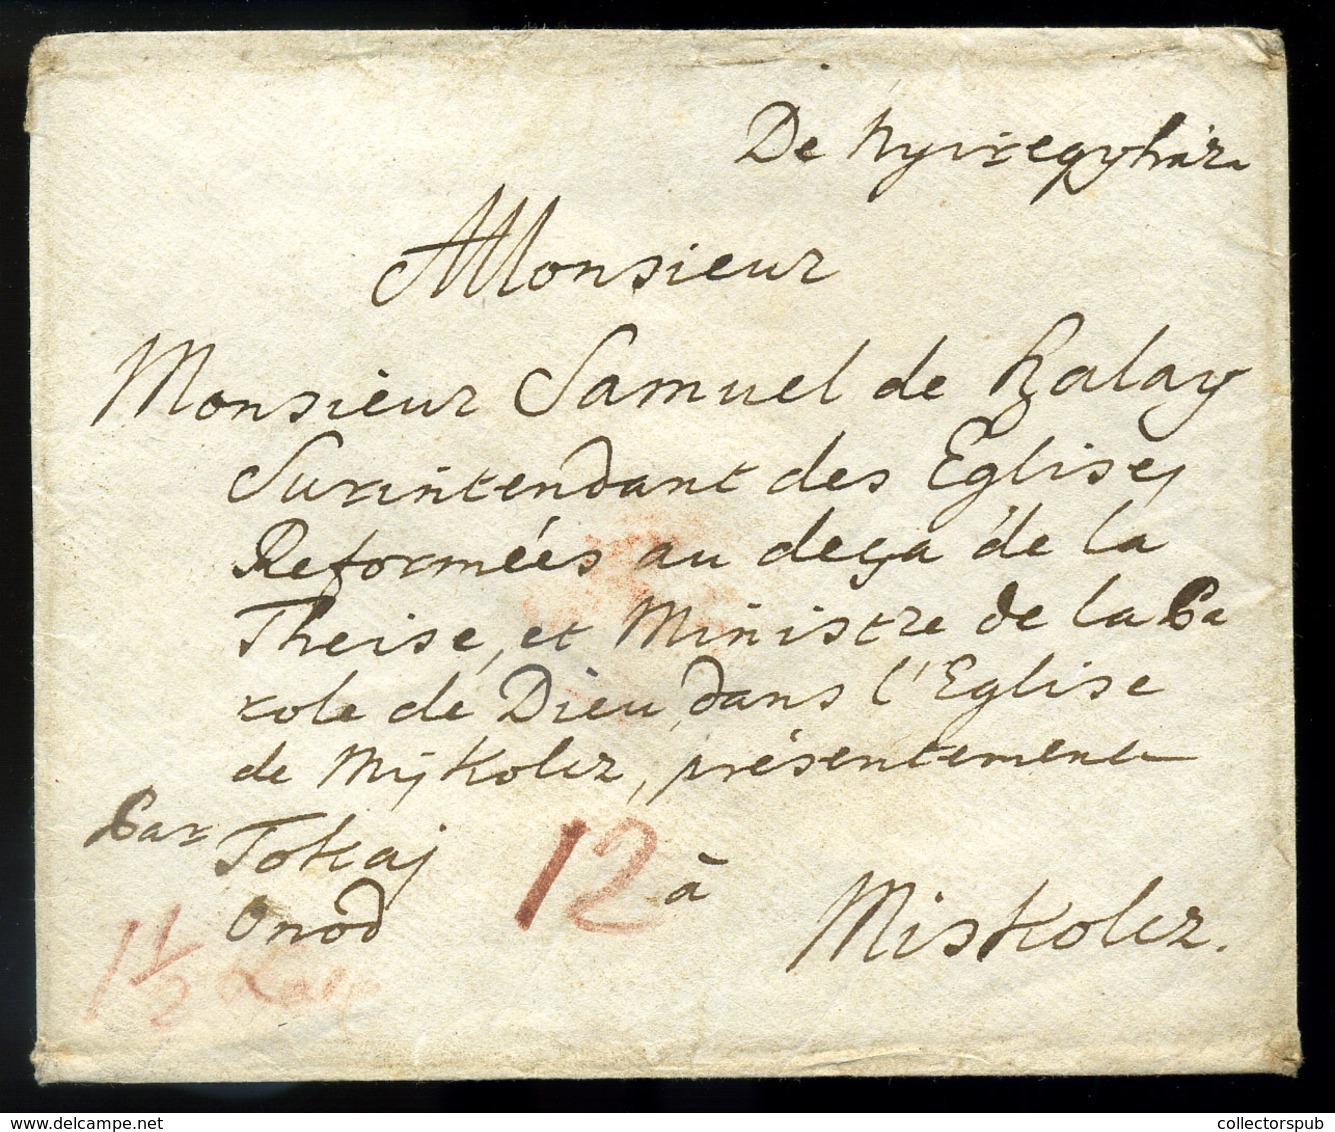 De Nyiregyház
Monsieur
Monsieur Samuel de Szalay
Surintendant des Eglises
Reformées au deça de la
Theise, et Ministre de la Pa
role de Dieu, dans l'Eglise
de Mijkolcz, présentement
Par Tokaj 12 à
Onod Miskolcz.
1 1/2
collectorspub